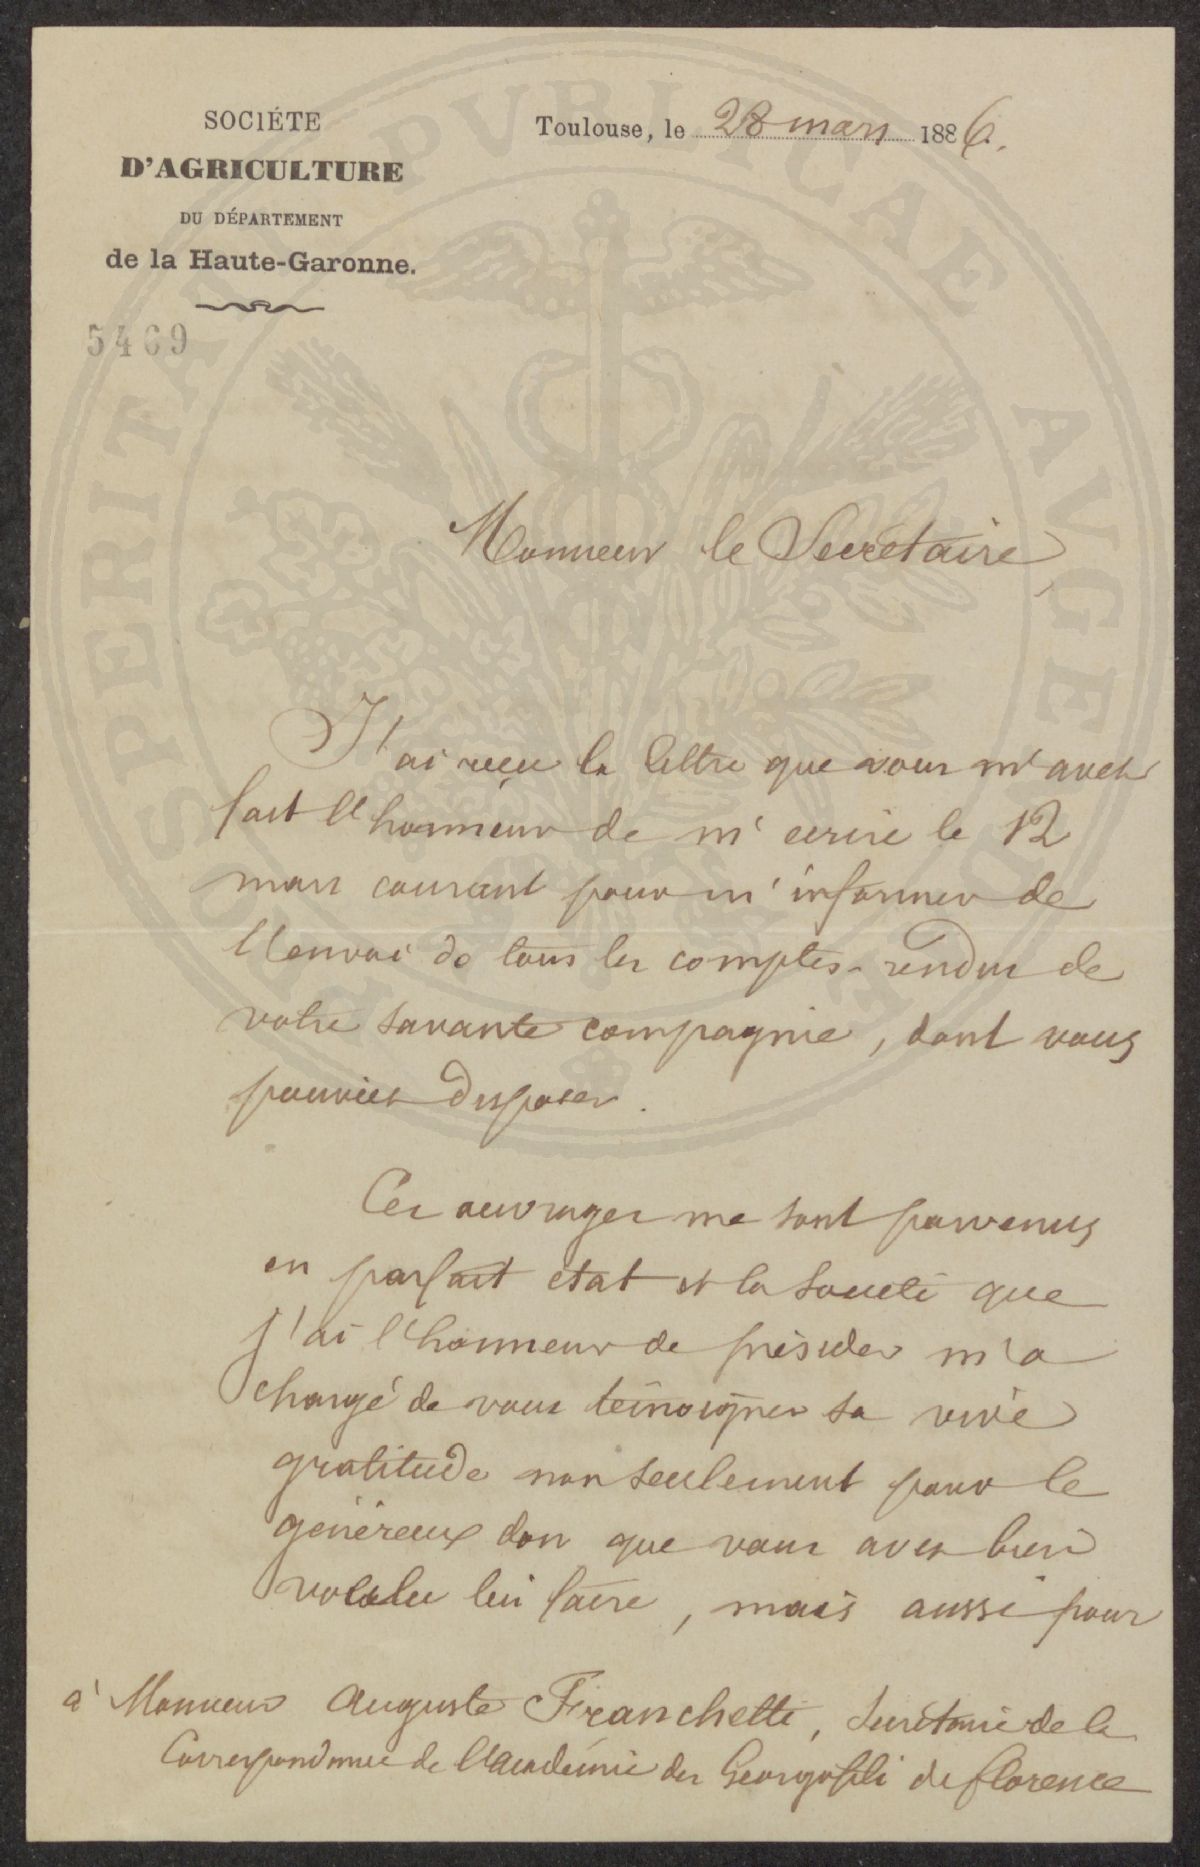 SOCIÉTE
D'AGRICULTURE
DU DÉPARTEMENT
de la Haute-Garonne.
5469
Toulouse, le 28 mars 1886.
Monsieur le Secrétaire,
J'ai reçu la lettre que vous m'avez
fait l'honneur de m'ecrire le 12
mars courant pour m'informer de
l'envoi de tous les comptes-rendus de
votre savante compagnie, dont vous
pouviez disposer.
Ces ouvrages me sont parvenus
en parfait état et la Société que
j'ai l'honneur de présider m'a
chargé de vous témoigner sa vive
gratitude non seulement pour le
généreux don que vous avez bien
voulu lui faire, mais aussi pour
à Monsieur Auguste Franchetti, Secrétaire de la
Correspondance de l'Académie des Georgofili de florence
PROSPERITATI PVBLICAE AVGENDAE